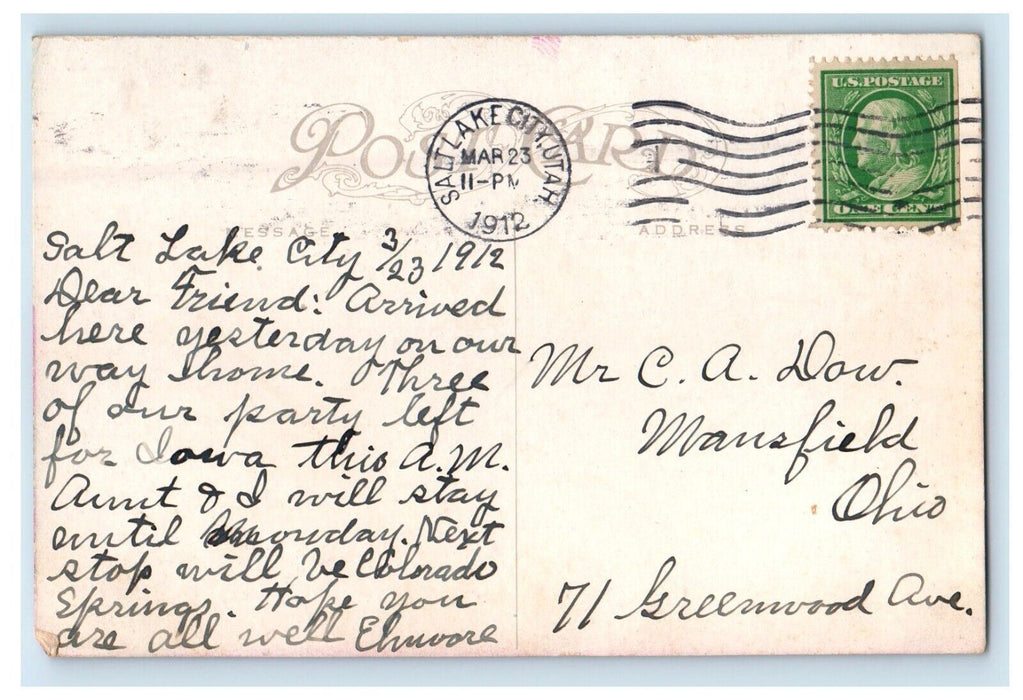 POST CARD
SALT LAKE CITY, UTAH
MAR 23
11-PM
1912
U.S. POSTAGE
ONE CENT
MESSAGE
ADDRESS
Salt Lake City 3/23 1912
Dear Friend: Arrived
here yesterday on our
way home. Three
of our party left
for Iowa this A.M.
Aunt & I will stay
until. Next
stop will be Colorado
Springs. Hope you
are all well Elmore
Mr C. A. Dow.
Mansfield
Ohio
71 Greenwood Ave.